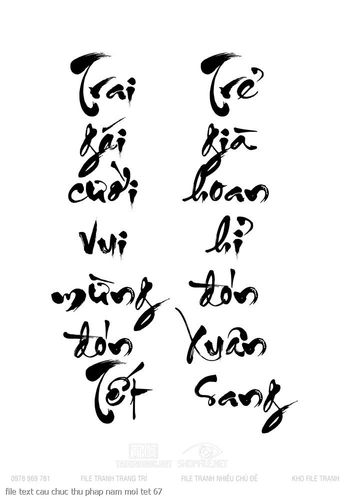 Trai
gái
cười
vui
mừng
đón
Tết
Trẻ
già
hoan
hỉ
đón
Xuân
sang
0978 969 761 FILE TRANH TRANG TRÍ FILE TRANH NHIỀU CHỦ ĐỀ KHO FILE TRANH
file text cau chuc thu phap nam moi tet 67